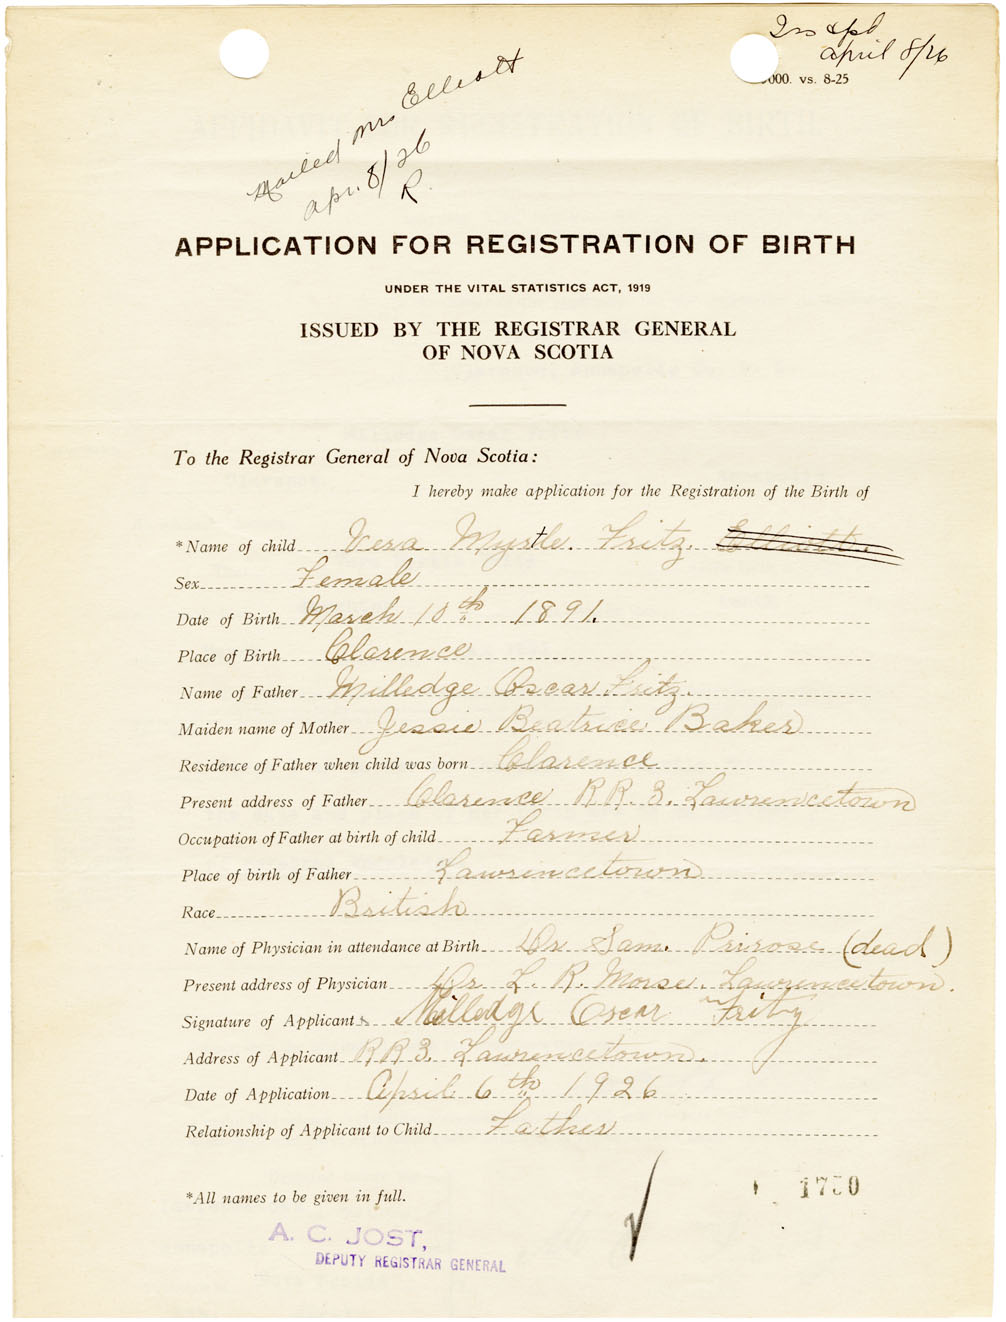 april 8/26
000. vs. 8-25
Mailed Mrs Elliott
apr. 8/26
R.
APPLICATION FOR REGISTRATION OF BIRTH
UNDER THE VITAL STATISTICS ACT, 1919
ISSUED BY THE REGISTRAR GENERAL
OF NOVA SCOTIA
To the Registrar General of Nova Scotia:
I hereby make application for the Registration of the Birth of
*Name of child Vera Myrtle. Fritz. Elliott.
Sex Female
Date of Birth March 10th 1891.
Place of Birth Clarence
Name of Father Milledge Oscar Fritz.
Maiden name of Mother Jessie Beatrice Baker
Residence of Father when child was born Clarence
Present address of Father Clarence RR. 3. Lawrencetown
Occupation of Father at birth of child Farmer
Place of birth of Father Lawrencetown
Race British
Name of Physician in attendance at Birth Dr Sam. Primrose (dead)
Present address of Physician Dr. L. R. Morse. Lawrencetown.
Signature of Applicant Milledge Oscar Fritz
Address of Applicant RR3. Lawrencetown.
Date of Application April 6th 1926
Relationship of Applicant to Child Father
*All names to be given in full.
1750
A. C. JOST,
DEPUTY REGISTRAR GENERAL